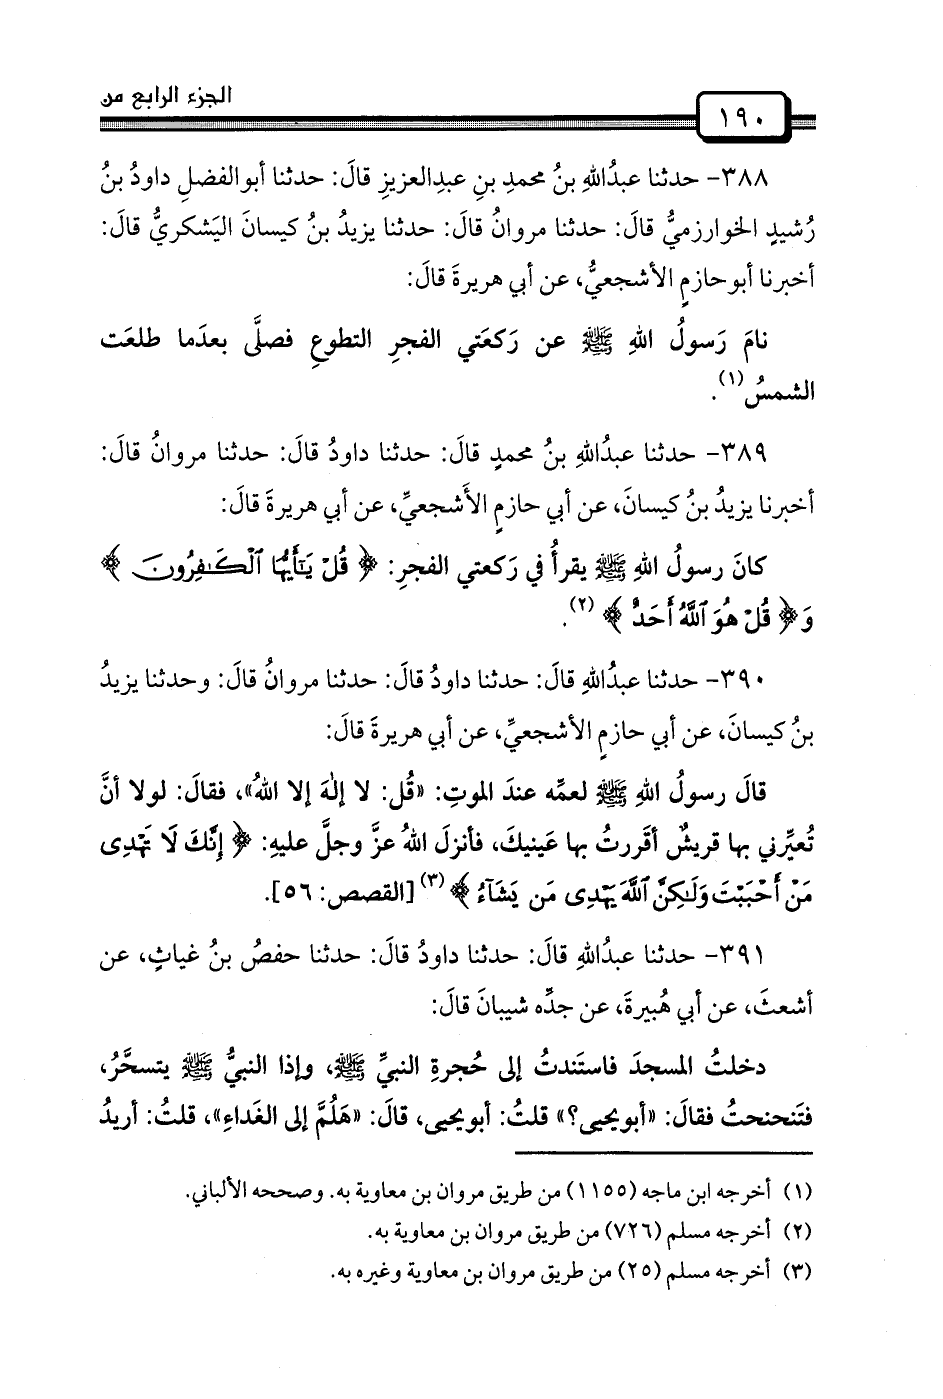 الجزء الرابع من
١٩٠
٣٨٨- حدثنا عبدُاللهِ بنُ محمدِ بنِ عبدِالعزيزِ قالَ: حدثنا أبوالفضلِ داودُ بنُ
رُشيدٍ الخوارزميُّ قالَ: حدثنا مروانُ قالَ: حدثنا يزيدُ بنُ كيسانَ اليَشكريُّ قالَ:
أخبرنا أبوحازمٍ الأشجعيُّ، عن أبي هريرةَ قالَ:
نامَ رَسولُ اللهِ ﷺ عن رَكعَتي الفجرِ التطوعِ فصلَّى بعدَما طلعَت
الشمسُ(١).
٣٨٩- حدثنا عبدُاللهِ بنُ محمدٍ قالَ: حدثنا داودُ قالَ: حدثنا مروانُ قالَ:
أخبرنا يزيدُ بنُ كيسانَ، عن أبي حازمٍ الأَشجعيِّ، عن أبي هريرةَ قالَ:
كانَ رسولُ اللهِ ﷺ يقرأُ في رَكعتي الفجرِ: ﴿ قُلْ يَٰٓأَيُّهَا ٱلْكَٰفِرُونَ ﴾
وَ﴿ قُلْ هُوَ ٱللَّهُ أَحَدٌ ﴾(٢).
٣٩٠- حدثنا عبدُاللهِ قالَ: حدثنا داودُ قالَ: حدثنا مروانُ قالَ: وحدثنا يزيدُ
بنُ كيسانَ، عن أبي حازمٍ الأشجعيِّ، عن أبي هريرةَ قالَ:
قالَ رسولُ اللهِ ﷺ لعمِّه عندَ الموتِ: «قُل: لا إلهَ إلا اللهُ»، فقالَ: لولا أنَّ
تُعيِّرني بها قريشٌ أقررتُ بها عَينيكَ، فأنزلَ اللهُ عزَّ وجلَّ عليهِ: ﴿ إِنَّكَ لَا تَهْدِى
مَنْ أَحْبَبْتَ وَلَٰكِنَّ ٱللَّهَ يَهْدِى مَن يَشَآءُ ﴾(٣) [القصص: ٥٦].
٣٩١- حدثنا عبدُاللهِ قالَ: حدثنا داودُ قالَ: حدثنا حفصُ بنُ غياثٍ، عن
أشعثَ، عن أبي هُبيرةَ، عن جدِّه شيبانَ قالَ:
دخلتُ المسجدَ فاستَندتُ إلى حُجرةِ النبيِّ ﷺ، وإذا النبيُّ ﷺ يتسحَّرُ،
فتَنحنحتُ فقالَ: «أبويحيى؟» قلتُ: أبويحيى، قالَ: «هَلُمَّ إلى الغَداءِ»، قلتُ: أريدُ
(١) أخرجه ابن ماجه (١١٥٥) من طريق مروان بن معاوية به. وصححه الألباني.
(٢) أخرجه مسلم (٧٢٦) من طريق مروان بن معاوية به.
(٣) أخرجه مسلم (٢٥) من طريق مروان بن معاوية وغيره به.